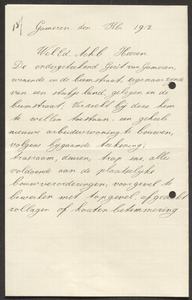 Gameren den Feb. 1912
WelEd. Achtb. Heeren
De ondergeteekend Gerit van Gameren,
wonende in de burmstraat, eigenaar zynde
van een stukje land, gelegen in de
burmstraat. Verzoekt bij deze hem
te willen toestaan, een geheele
nieuwe arbeiderswoning te bouwen,
volgens bijgaande teekening;
traswam, deuren, trap enz. alles
voldoende aan de plaatselijke
bouwverordeningen, voorgevel te
bewerken met topgevel, afgedekt
rollagen of houten betimmering